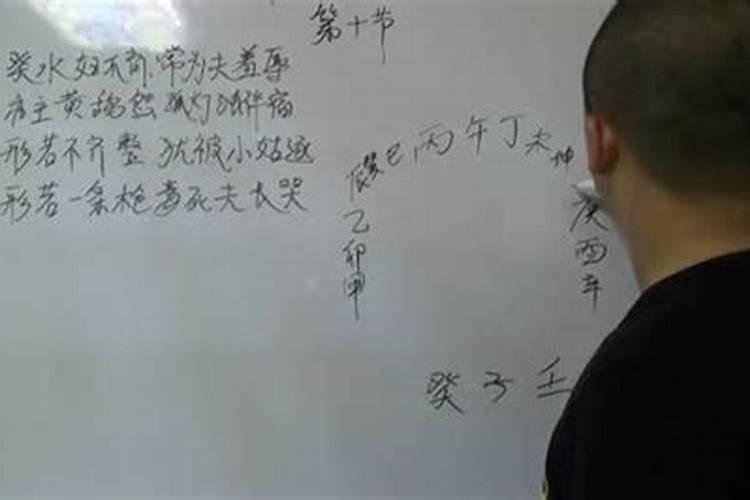 第十节
癸水 不 带为夫羞辱
主黄 伴宿
形若不齐整 犹被小姑逐
形若一条枪 毒死夫长哭
巳丙午丁未坤
乙
卯
甲
庚
酉
辛
癸子壬